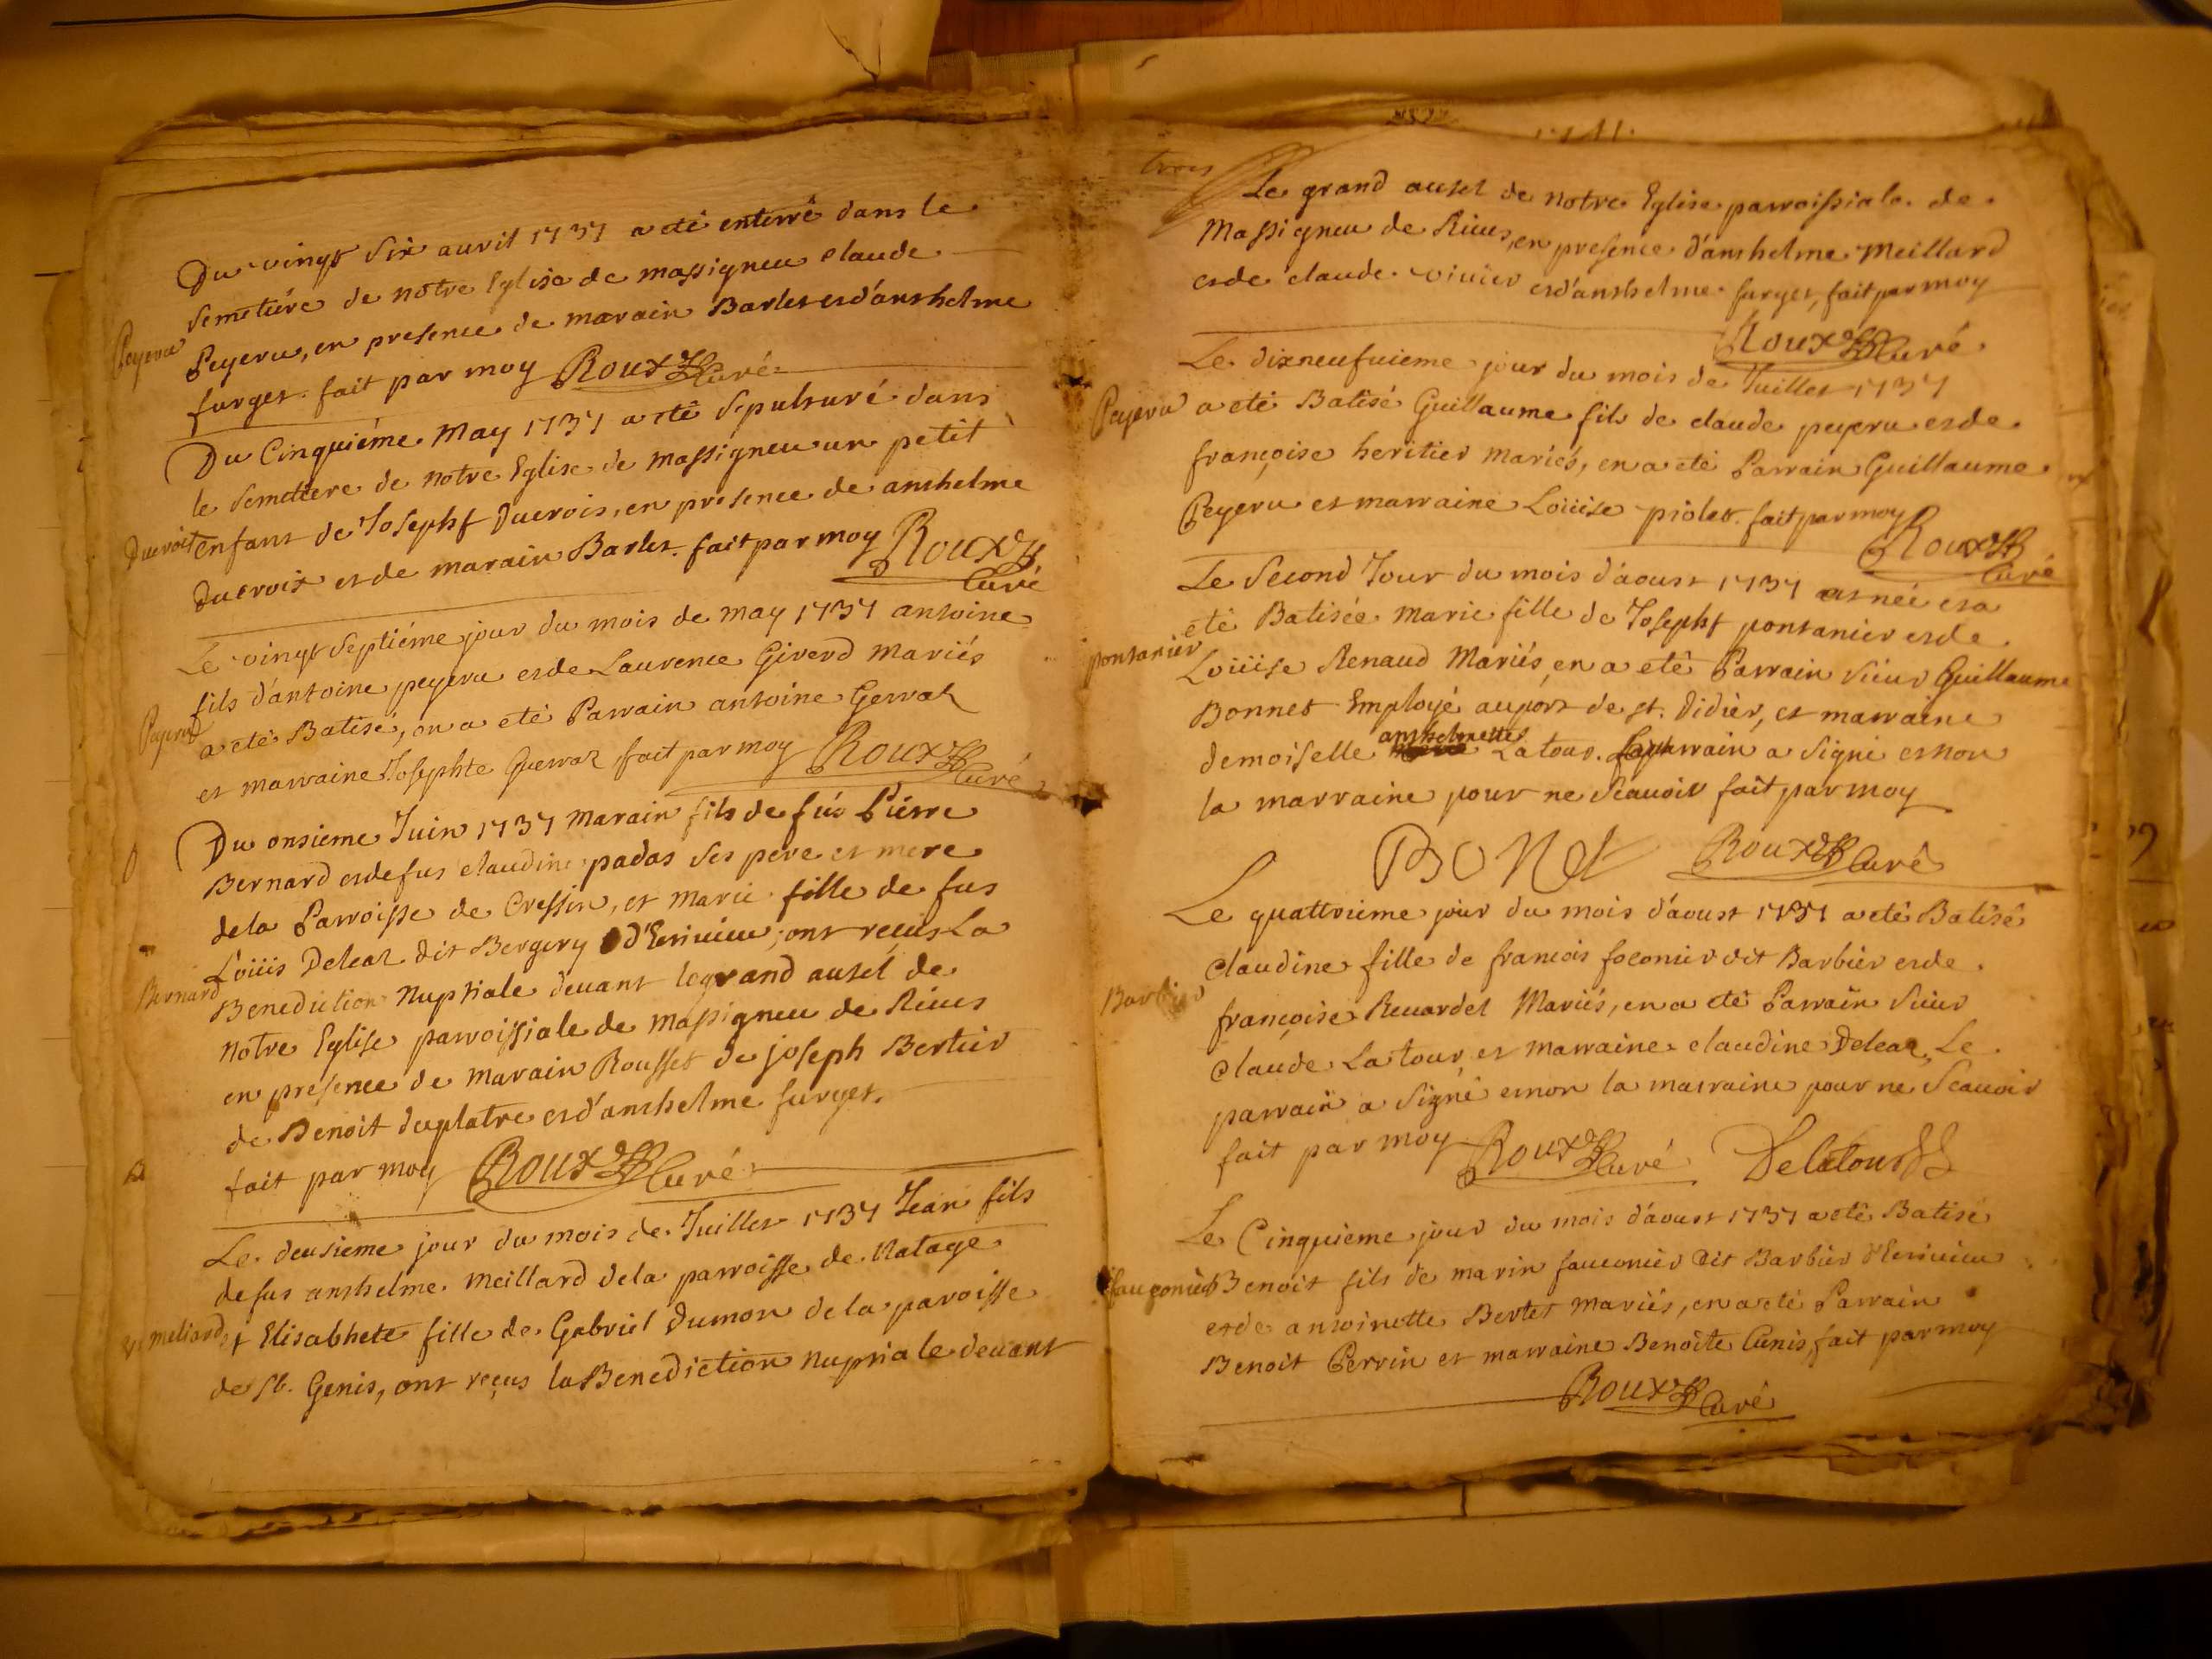 Du vingt Six auril 1737 a eté enterré dans le
Semetiére de notre Eglise de massigneu claude
Peyeru
Peyeru, en presence de marain Barlet et d'anthelme
furget. fait par moy Roux Curé
Du Cinquiéme May 1737 a eté Sepulturé dans
le Semetiere de notre Eglise de massigneu un petit
Ducroit
enfant de Josepht Ducrois, en presence de anthelme
Ducroix et de marain Barlet. fait par moy Roux
Curé
Le vingt Septiéme jour du mois de may 1737 antoine
fils d'antoine peyeru et de Laurence Giverd Mariés
Peyeru
a eté Batisé, en a eté Parrain antoine
et marraine Josephte fait par moy Roux Curé
Du onsieme Juin 1737 Marain fils de fus Pierre
Bernard et de fus claudine padas Ses pere et mere
de la Parroisse de Cressin, et marie fille de fus
Loüis Deleaz dit Bergery ont recus La
Bernard
Benediction Nuptiale deuant le grand autel de
notre Eglise parroissiale de Massigneu de Riues
en presence de marain Rousset de joseph Bertier
de Benoit duplatre et d'anthelme furget.
fait par moy Roux Curé
Le deusieme jour du mois de Juillet 1737 Jean fils
de fus anthelme Meillard de la parroisse de Natage
meliard
et Elisabhete fille de Gabriel Dumon de la paroisse
de St. Genis, ont reçus la Benediction nuptiale deuant
Le grand autel de notre Eglise parroissiale de
Massigneu de Riues, en presence d'anthelme Meillard
et de claude viuier et d'anthelme furget, fait par moy
Roux Curé
Le dixneufuieme jour du mois de Juillet 1737
Peyeru
a eté Batisé Guillaume fils de claude peyeru et de
françoise heritier mariés, en a eté Parrain Guillaume
Peyeru et marraine Loüise piolet. fait par moy
Roux
Curé
Le Second Jour du mois d'aoust 1737 est née et a
eté Batisée Marie fille de Josepht pontanier et de
pontanier
Loüise Renaud Mariés, en a eté Parrain Sieur Guillaume
Bonnet Employé au port de st. Didier, et marraine
demoiselle anthelmette Latour. parrain a Signé et non
la marraine pour ne Scauoir fait par moy
BONet Roux Curé
Le quattrieme jour du mois d'aoust 1737 a eté Batisé
claudine fille de francois foconier dit Barbier et de
Barbier
françoise Reuardel Mariés, en a eté Parrain Sieur
claude Latour, et marraine claudine Deleaz, Le
parrain a Signé et non la marraine pour ne Scauoir
fait par moy Roux Curé Delatour
Le Cinquieme jour du mois d'aoust 1737 a eté Batisé
fauconier
Benoit fils de marin fauconier dit Barbier
et de antoinette Bertet Mariés, en a eté Parrain
Benoit Perrin et marraine Benoite Cunis, fait par moy
Roux Curé